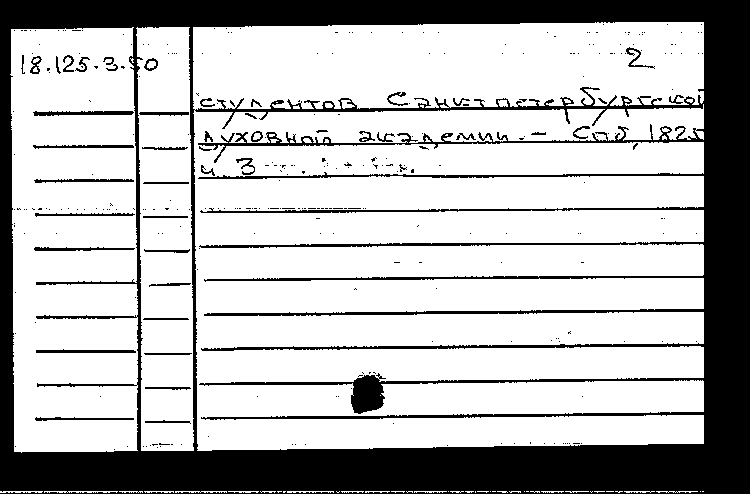 18.125.3.50
2
студентов Санктпетербургской
духовной академии. - Спб, 1825
ч. 3